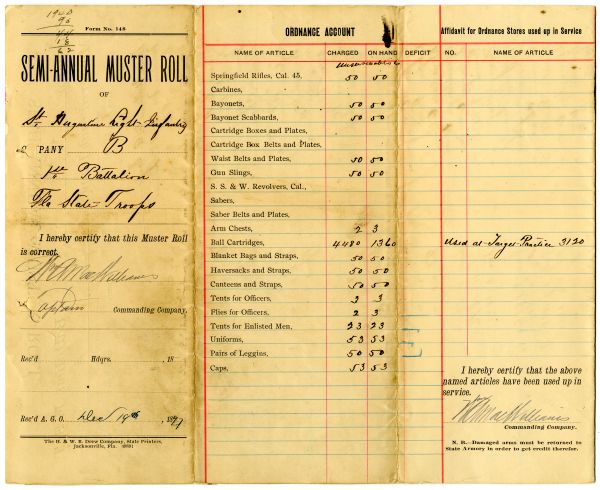 Form No. 148
SEMI-ANNUAL MUSTER ROLL
OF
St. Augustine Light Infantry
PANY B
1st Battalion
Fla State Troops
I hereby certify that this Muster Roll
is correct.
W A MacWilliams
Captain Commanding Company.
Rec'd Hdqrs. 18
Rec'd A. G. O. Dec 19th 1897
The H. & W. B. Drew Company, State Printers,
Jacksonville, Fla.
ORDNANCE ACCOUNT
NAME OF ARTICLE CHARGED ON HAND DEFICIT
unserviceable
Springfield Rifles, Cal. 45, 50 50
Carbines,
Bayonets, 50 50
Bayonet Scabbards, 50 50
Cartridge Boxes and Plates,
Cartridge Box Belts and Plates,
Waist Belts and Plates, 50 50
Gun Slings, 50 50
S. S. & W. Revolvers, Cal.,
Sabers,
Saber Belts and Plates,
Arm Chests, 2 3
Ball Cartridges, 4480 1360
Blanket Bags and Straps, 50 50
Haversacks and Straps, 50 50
Canteens and Straps, 50 50
Tents for Officers, 3 3
Flies for Officers, 2 3
Tents for Enlisted Men, 23 23
Uniforms, 53 53
Pairs of Leggins, 50 50
Caps, 53 53
Affidavit for Ordnance Stores used up in Service
NO. NAME OF ARTICLE
Used at Target Practice 3120
I hereby certify that the above
named articles have been used up in
service.
W A MacWilliams
Commanding Company.
N. B.—Damaged arms must be returned to
State Armory in order to get credit therefor.